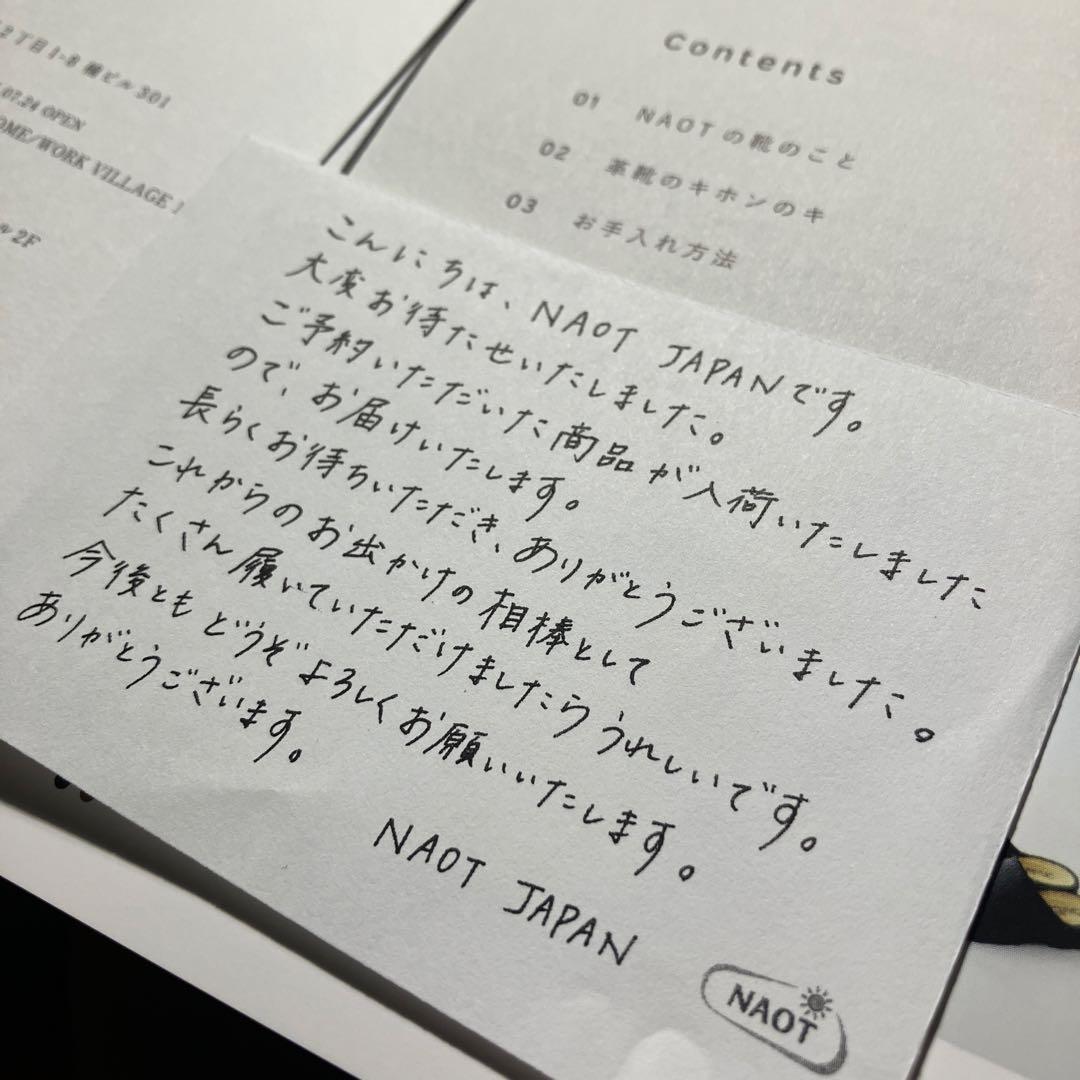 2丁目1-8 橋ビル301
.07.24 OPEN
OME/WORK VILLAGE 1
ル2F
Contents
01 NAOTの靴のこと
02 革靴のキホンのキ
03 お手入れ方法
こんにちは、NAOT JAPANです。
大変お待たせいたしました。
ご予約いただいた商品が入荷いたしました
ので、お届けいたします。
長らくお待ちいただき、ありがとうございました。
これからのお出かけの相棒として
たくさん履いていただけましたらうれしいです。
今後ともどうぞよろしくお願いいたします。
ありがとうございます。
NAOT JAPAN
NAOT